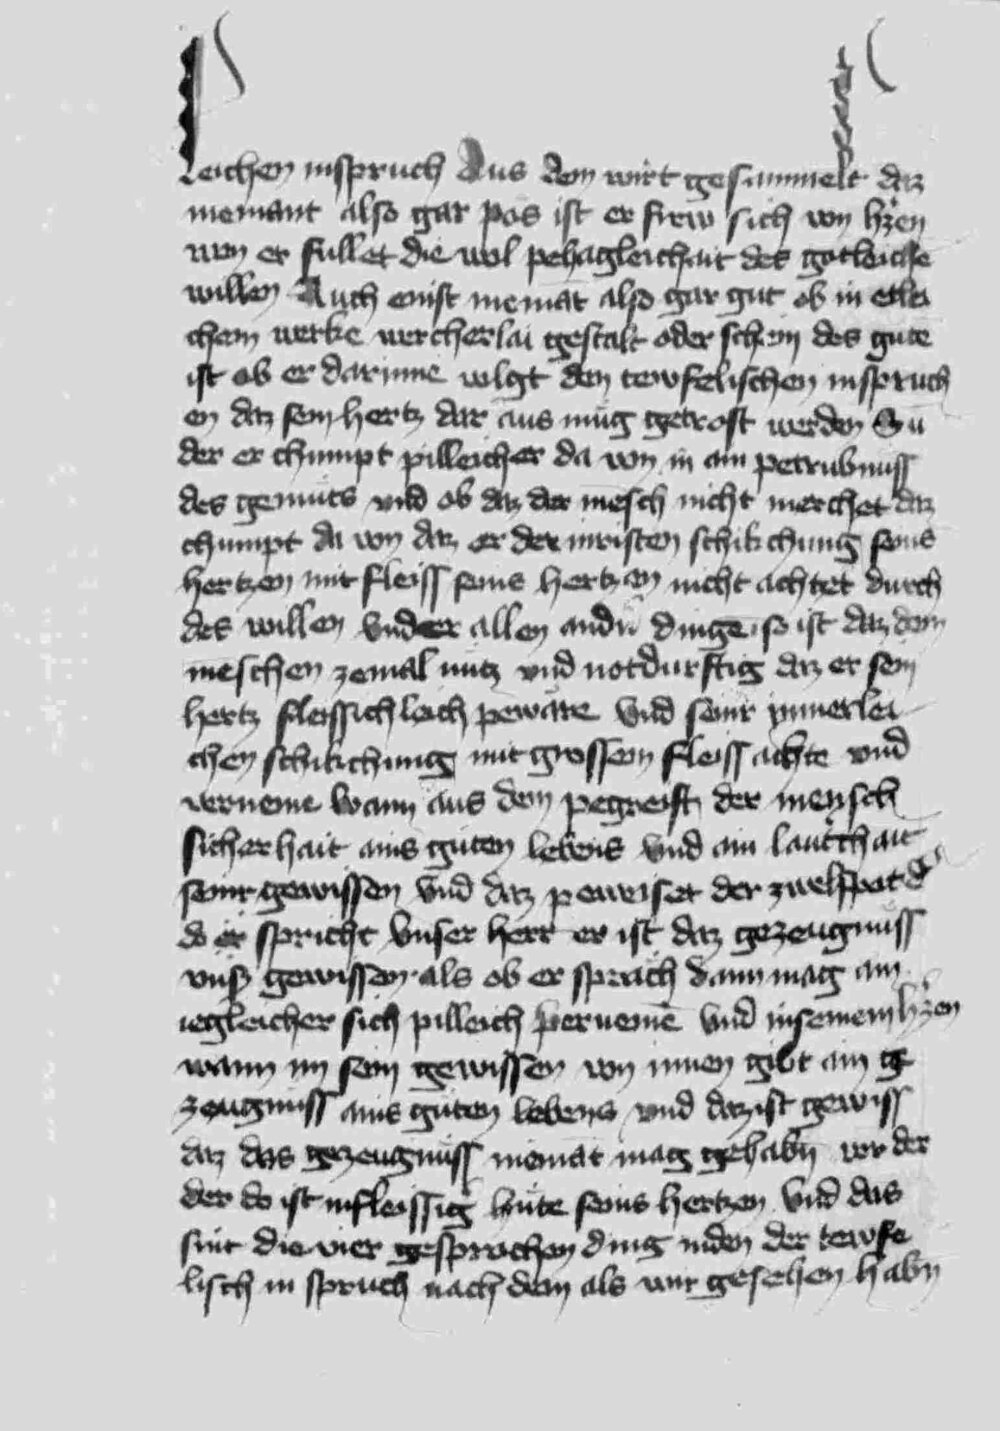 leichen inspruch Aus dem wirt gesammelt daz
niemant also gar pös ist er frew sich von hʒen
wen er fullet die wol pehagleichait des gotleiche
willen Auch enist niemāt also gar gut ob in etlei
chem werke wercherlai gestalt oder schein des gute
ist ob er darinne volgt den tewfelischen inspruch
en daz sein hertz dar aus mug getrost werden Sū
der er chumpt pilleicher da von in ain petrubnuss
des gemuts vnd ob daz der mēsch nicht merchet daz
chumpt da von daz er der inristen schikchung seins
hertzen mit fleiss seins hertzen nicht achtet durch
des willen vnder allen andn̄ dingē so ist daz dem
mēschen zemal nutz vnd notdurftig daz er sein
hertz fleissichleich peware vnd seinr innerlei
chen schikchung mit grossem fleiss achte vnd
verneme wann aus dem pegreift der mensch
sicherhait ains guten lebens vnd ain laut̓chait
seinr gewissen vnd daz peweiset der zwelfpot d̓
do er spricht vnser herr er ist daz gezeugnuss
vnsr̓ gewissen als ob er sprach dann mag ain
iegleicher sich pilleich vernemē vnd in seinem hʒen
wann im sein gewissen von innen gibt ain ge
zeugnuss ains guten lebens vnd daz ist gewiss
daz das gezeugnuss niemāt mag gehabn̄ wer der
der do ist infleissig hute seins hertzen vnd das
sint die vier gesprochen ding in den der tewfe
lisch in spruch nach dem als wir gesehen habn̄